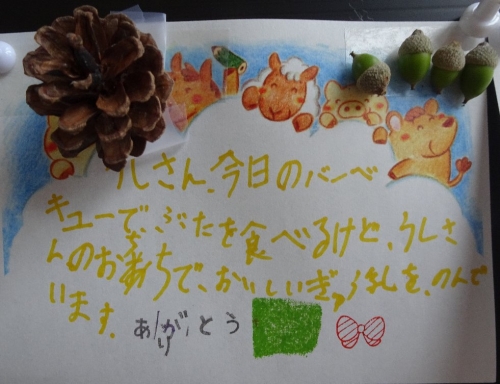 うしさん、今日のバーベ
キューで、ぶたを食べるけど、うしさ
んのおちちで、おいしいぎゅう乳を、のんで
います。ありがとう